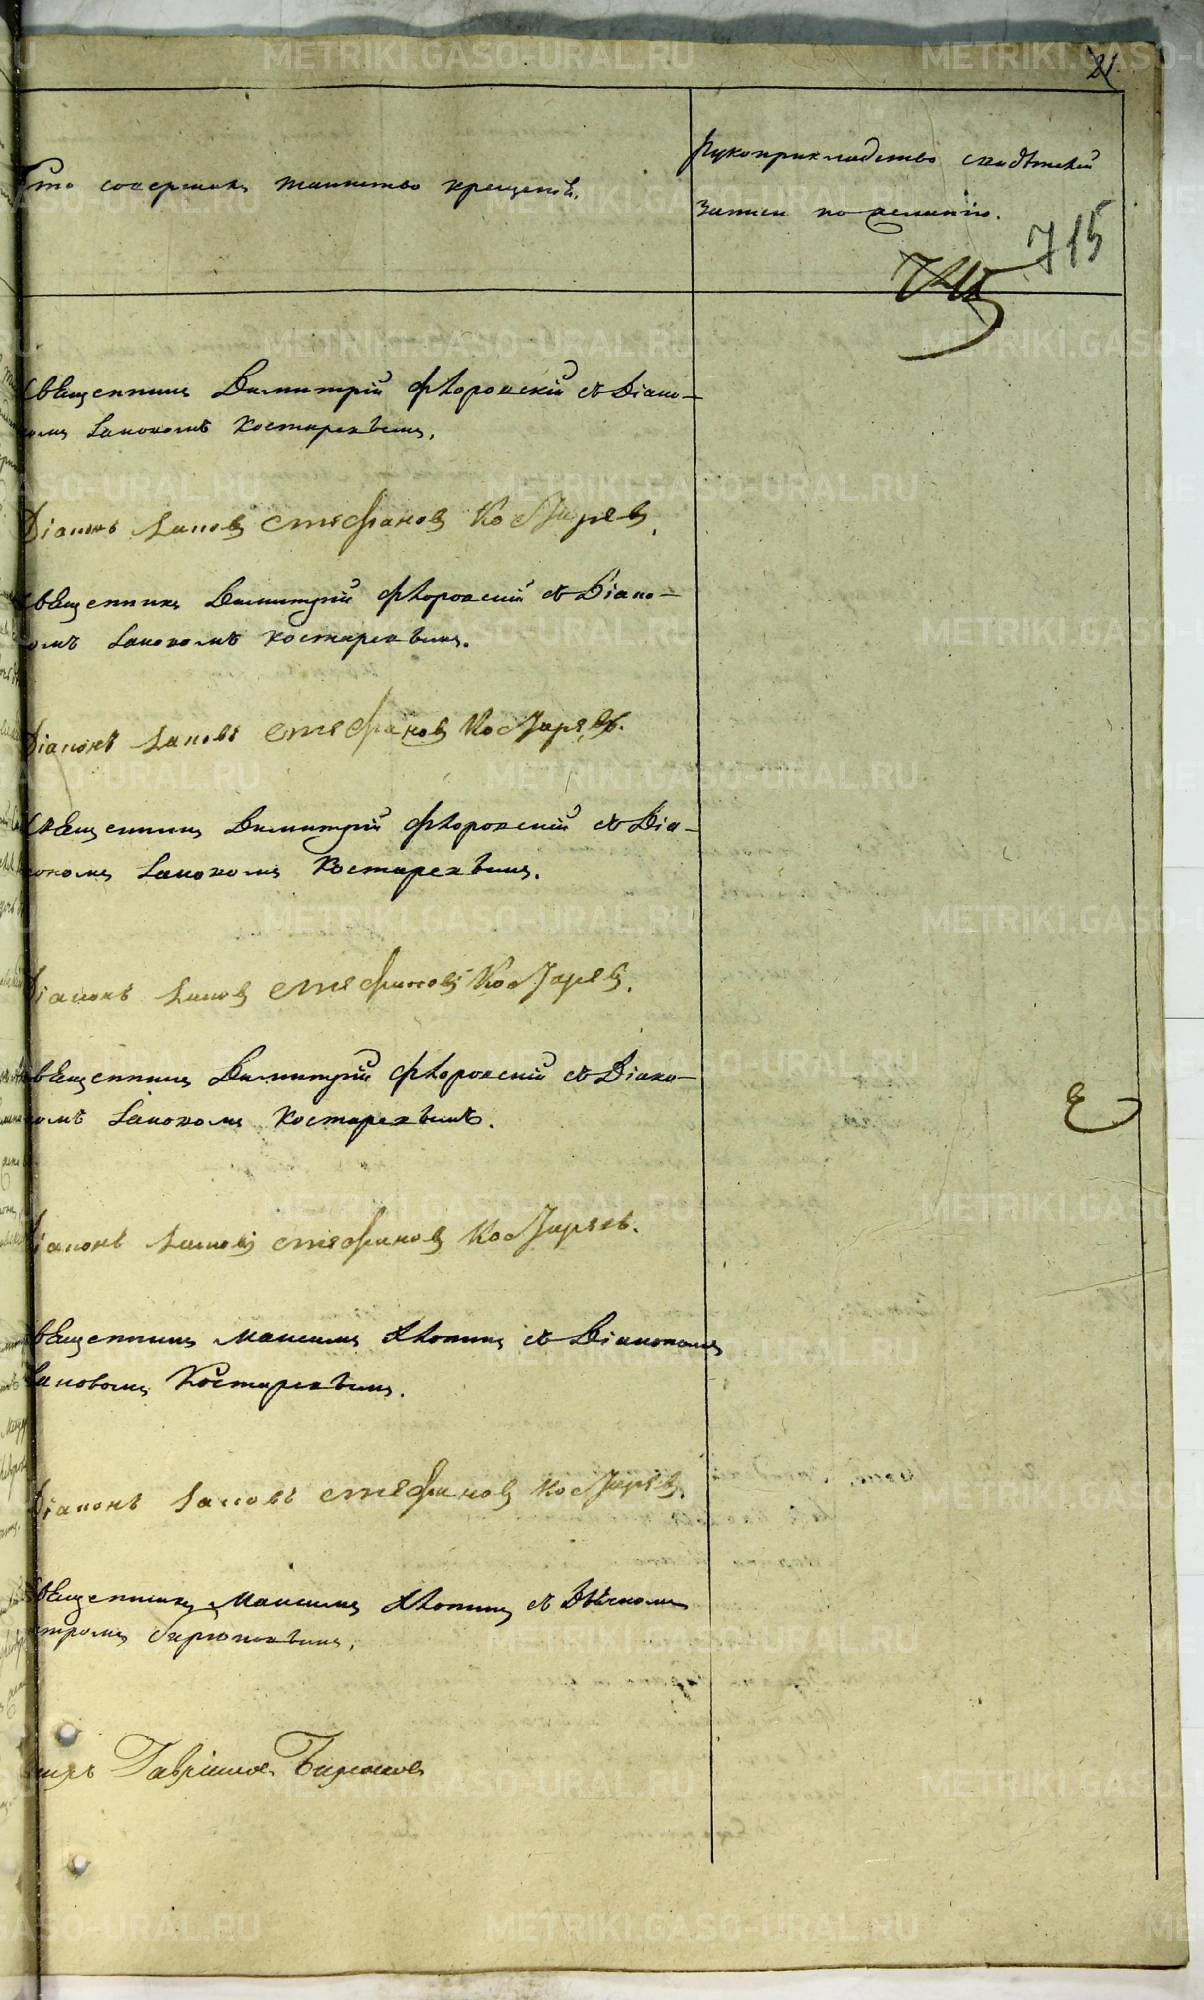 21
Кто совершалъ таинство крещенія.
Рукоприкладство свидѣтелей
записи по желанію.
715
Священникъ Димитрій Флоровскій съ Діако-
номъ Іаковомъ Костаревымъ.
Діаконъ Іаковъ Стефановъ Костаревъ.
Священникъ Димитрій Флоровскій съ Діако-
номъ Іаковомъ Костаревымъ.
Діаконъ Іаковъ Стефановъ Костаревъ.
Священникъ Димитрій Флоровскій съ Діа-
кономъ Іаковомъ Костаревымъ.
Діаконъ Іаковъ Стефановъ Костаревъ.
Священникъ Димитрій Флоровскій съ Діако-
номъ Іаковомъ Костаревымъ.
Діаконъ Іаковъ Стефановъ Костаревъ.
Священникъ Максимъ съ Діакономъ
Іаковомъ Костаревымъ.
Діаконъ Іаковъ Стефановъ Костаревъ.
Священникъ Максимъ съ Дьячкомъ
Петромъ Бирюковымъ.
Петръ Гавріиловъ Бирюковъ
METRIKI.GASO-URAL.RU